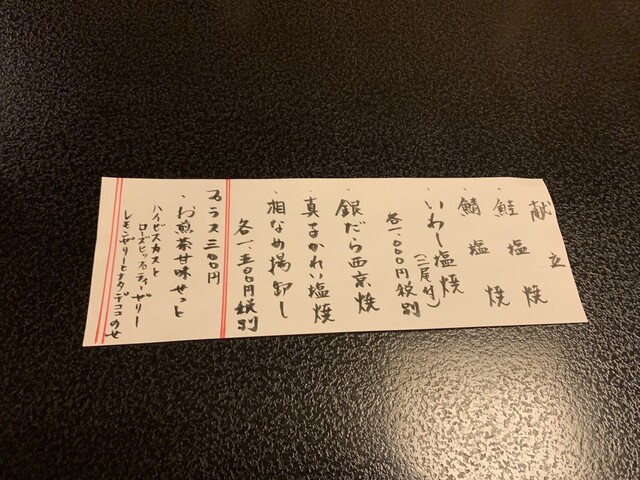 献立
・鮭塩焼
・鯖塩焼
・いわし塩焼
(二尾付)
各一、〇〇〇円税別
・銀だら西京焼
・真子かれい塩焼
・相なめ揚卸し
各一、五〇〇円税別
プラス三〇〇円
・お煎茶甘味せっと
ハイビスカスと
ローズヒップティーゼリー
レモンゼリーとナタデココのせ